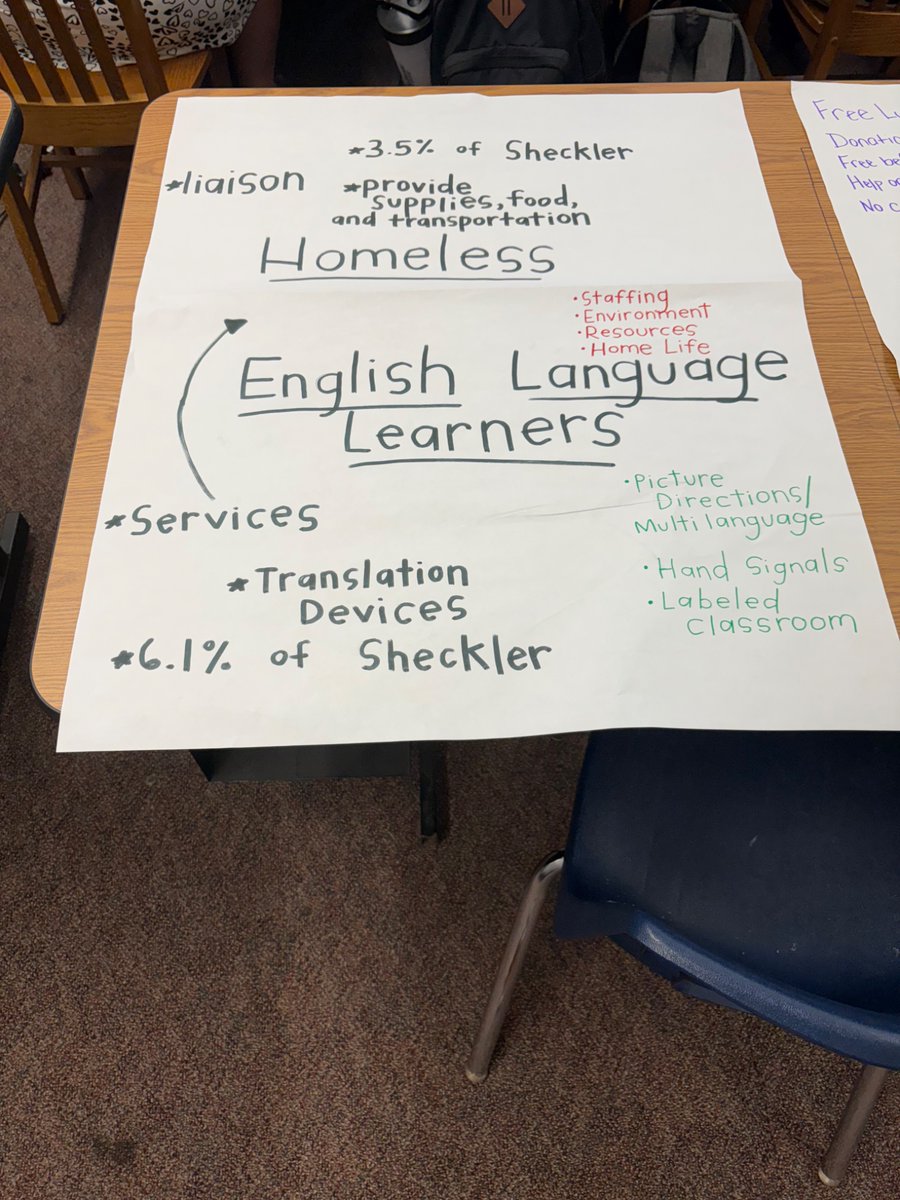 *3.5% of Sheckler
*liaison
*provide
supplies, food,
and transportation
Homeless
•Staffing
•Environment
•Resources
•Home Life
English Language
Learners
*Services
*Translation
Devices
*6.1% of Sheckler
•Picture
Directions/
Multi language
•Hand Signals
•Labeled
classroom
Free
Free
Help
No